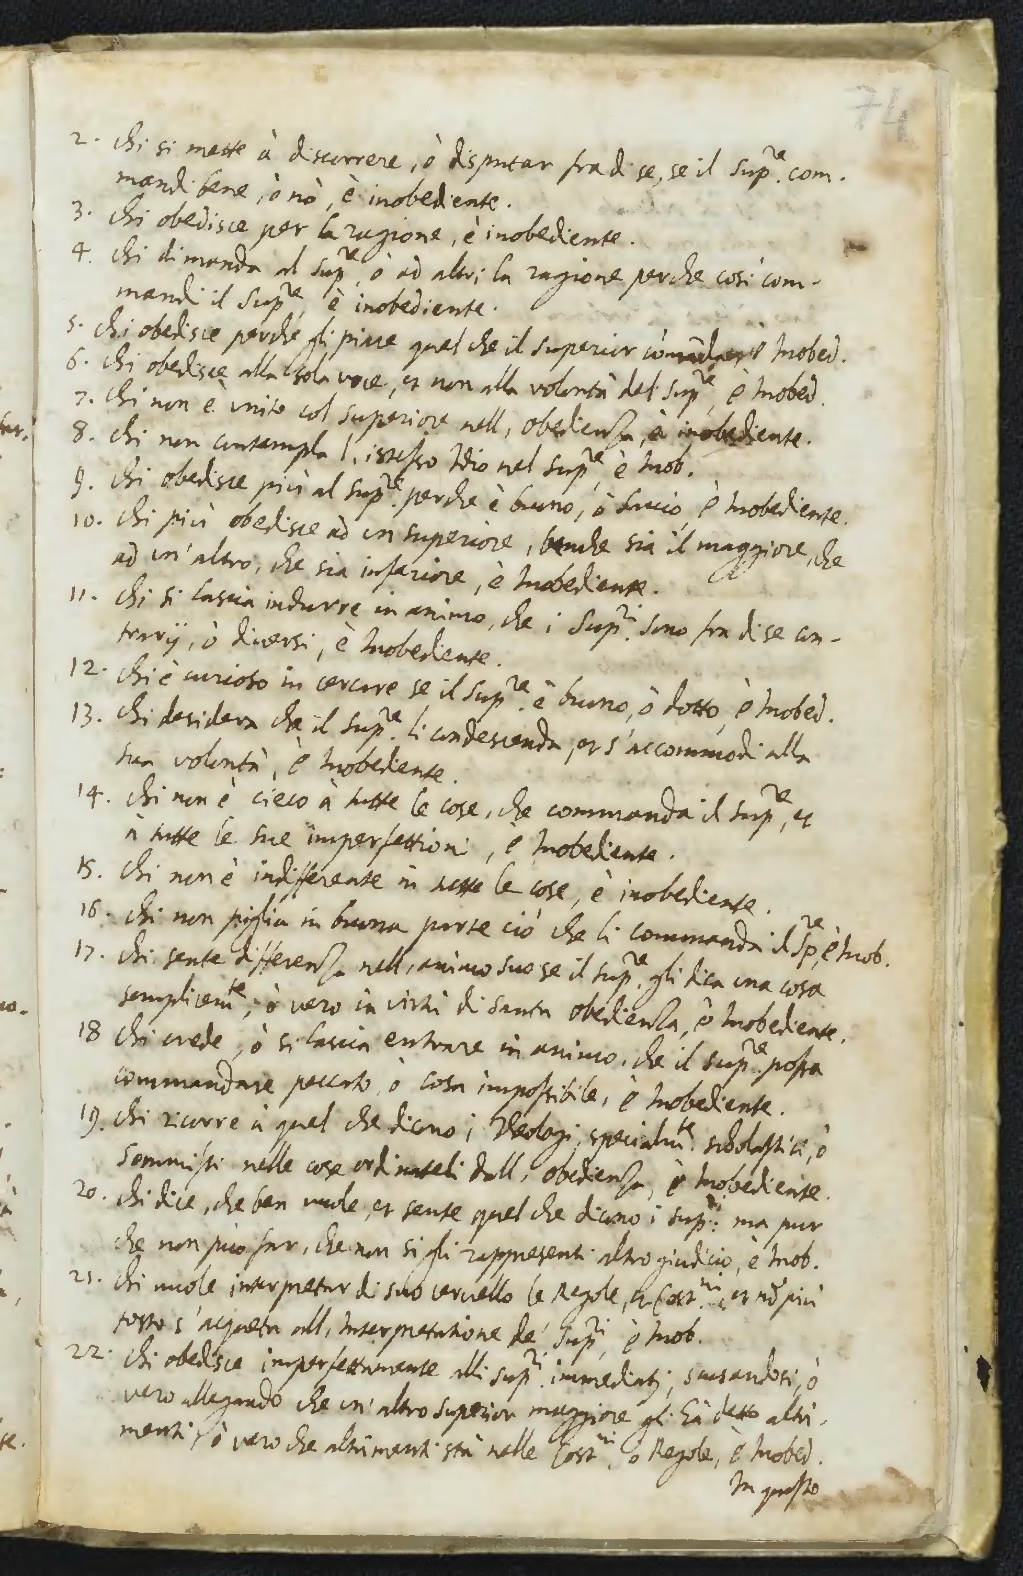 74
2. Chi si mette à discorrere, ò disputar fra di se, se il Sup.re com-
mandi bene, ò nò, è inobediente.
3. Chi obedisce per la ragione, è inobediente.
4. Chi dimanda al Sup.re, ò ad altri la ragione perche così com-
mandi il Sup.re, è inobediente.
5. Chi obedisce perche gli piace quel che il Superior comanda, è Inobed.
6. Chi obedisce alla sola voce, et non alla volontà del Sup.re, è Inobed.
7. Chi non è unito col superiore nell, obedienza, è inobediente.
8. Chi non contempla l, istesso Idio nel Sup.re, è Inob.
9. Chi obedisce più al Sup.re perche è buono, ò savio, è Inobediente.
10. Chi più obedisce ad un superiore, benche sia il maggiore, che
ad un' altro, che sia inferiore, è Inobediente.
11. Chi si lascia indurre in animo, che i Sup.ri sono fra di se con-
trarij, ò diversi, è Inobediente.
12. Chi è curioso in cercare se il Sup.re è buono, ò dotto, è Inobed.
13. Chi desidera che il Sup.re li condescenda, et s'accommodi alla
sua volontà, è Inobediente.
14. Chi non è cieco à tutte le cose, che commanda il Sup.re, et
à tutte le sue imperfettioni, è Inobediente.
15. Chi non è indifferente in tutte le cose, è inobediente.
16. Chi non piglia in buona parte ciò che li commanda il Sp.re, è Inob.
17. Chi sente differenza nell, animo suo se il Sup.re gli dica una cosa
semplicem.te, ò vero in virtù di santa obedienza, è Inobediente.
18 Chi crede, ò si lascia entrare in animo, che il Sup.re possa
commandare peccato, ò cosa impossibile, è Inobediente.
19. Chi ricorre à quel che dicono i Theologi, specialm.te scholastici, ò
Sommisti nelle cose ordinateli dall, obedienza, è Inobediente.
20. Chi dice, che ben vuole, et sente quel che dicono i Sup.ri ma pur
che non può far, che non si gli rappresenti altro giudicio, è Inob.
21. Chi vuole interpretar di suo cervello le Regole, et Cost.ni, et nõ più
tosto s' acqueta all, Interpretatione de' Sup.ri, è Inob.
22. Chi obedisce imperfettamente alli Sup.ri immediati, scusandosi, ò
vero allegando che un' altro superior maggiore gli hà detto altri-
menti, ò vero che altrimenti stà nelle Cost.ni, o Regole, è Inobed.
In questo